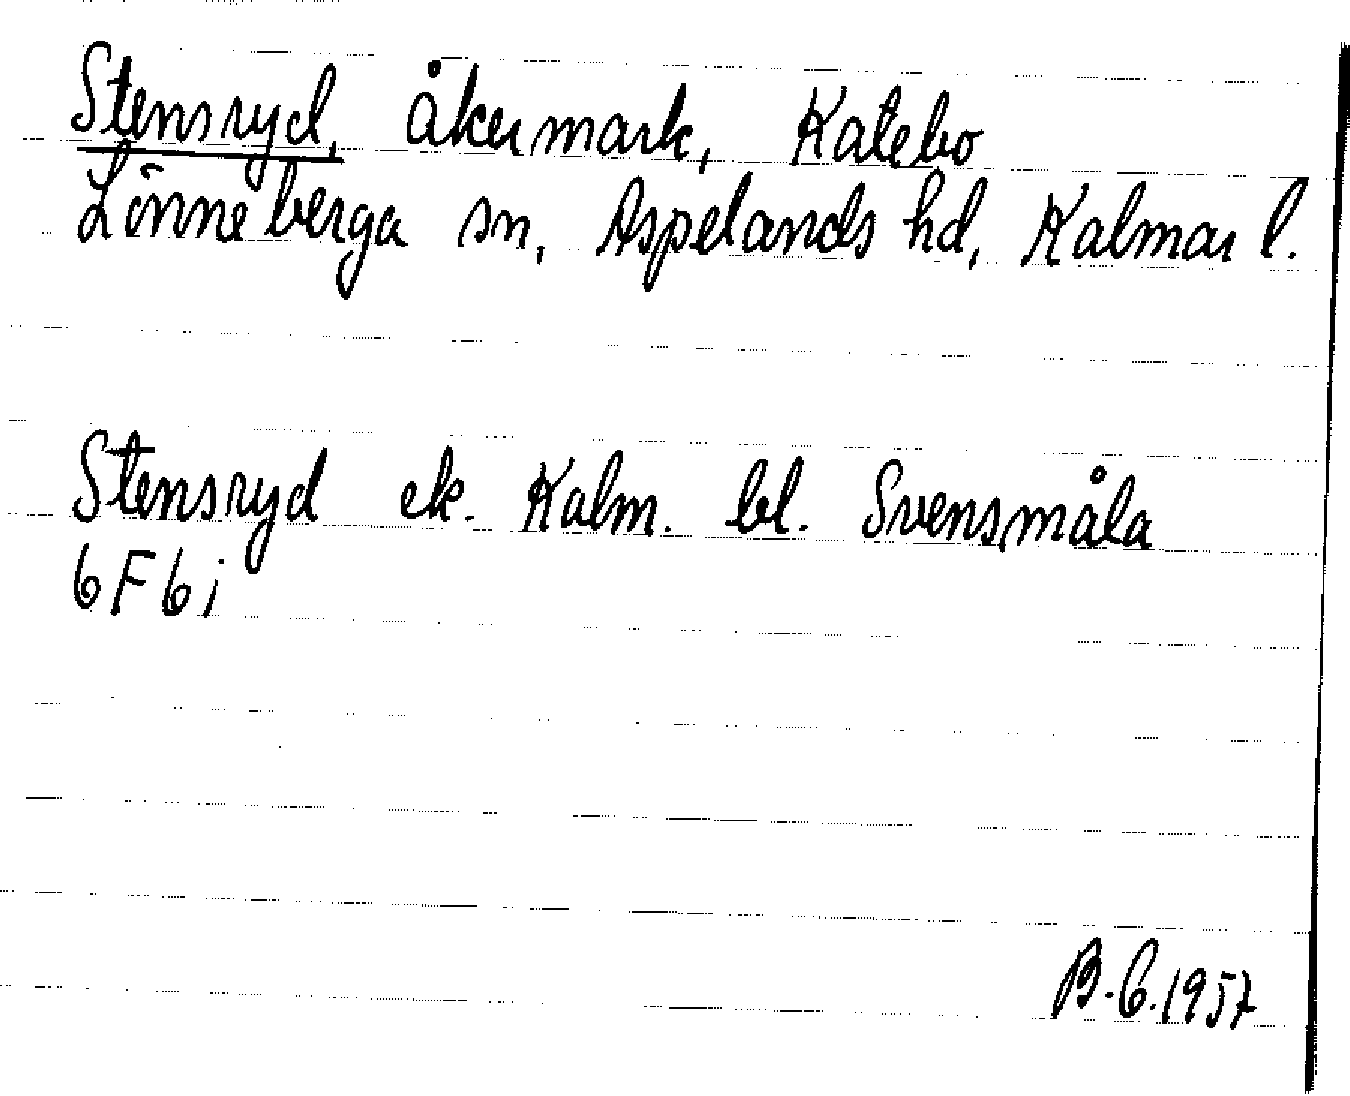 Stensryd, åkermark, Katebo
Lönneberga sn, Aspelands hd, Kalmar l.
Stensryd ek. Kalm. bl. Svensmåla
6F6i
B.C.1957